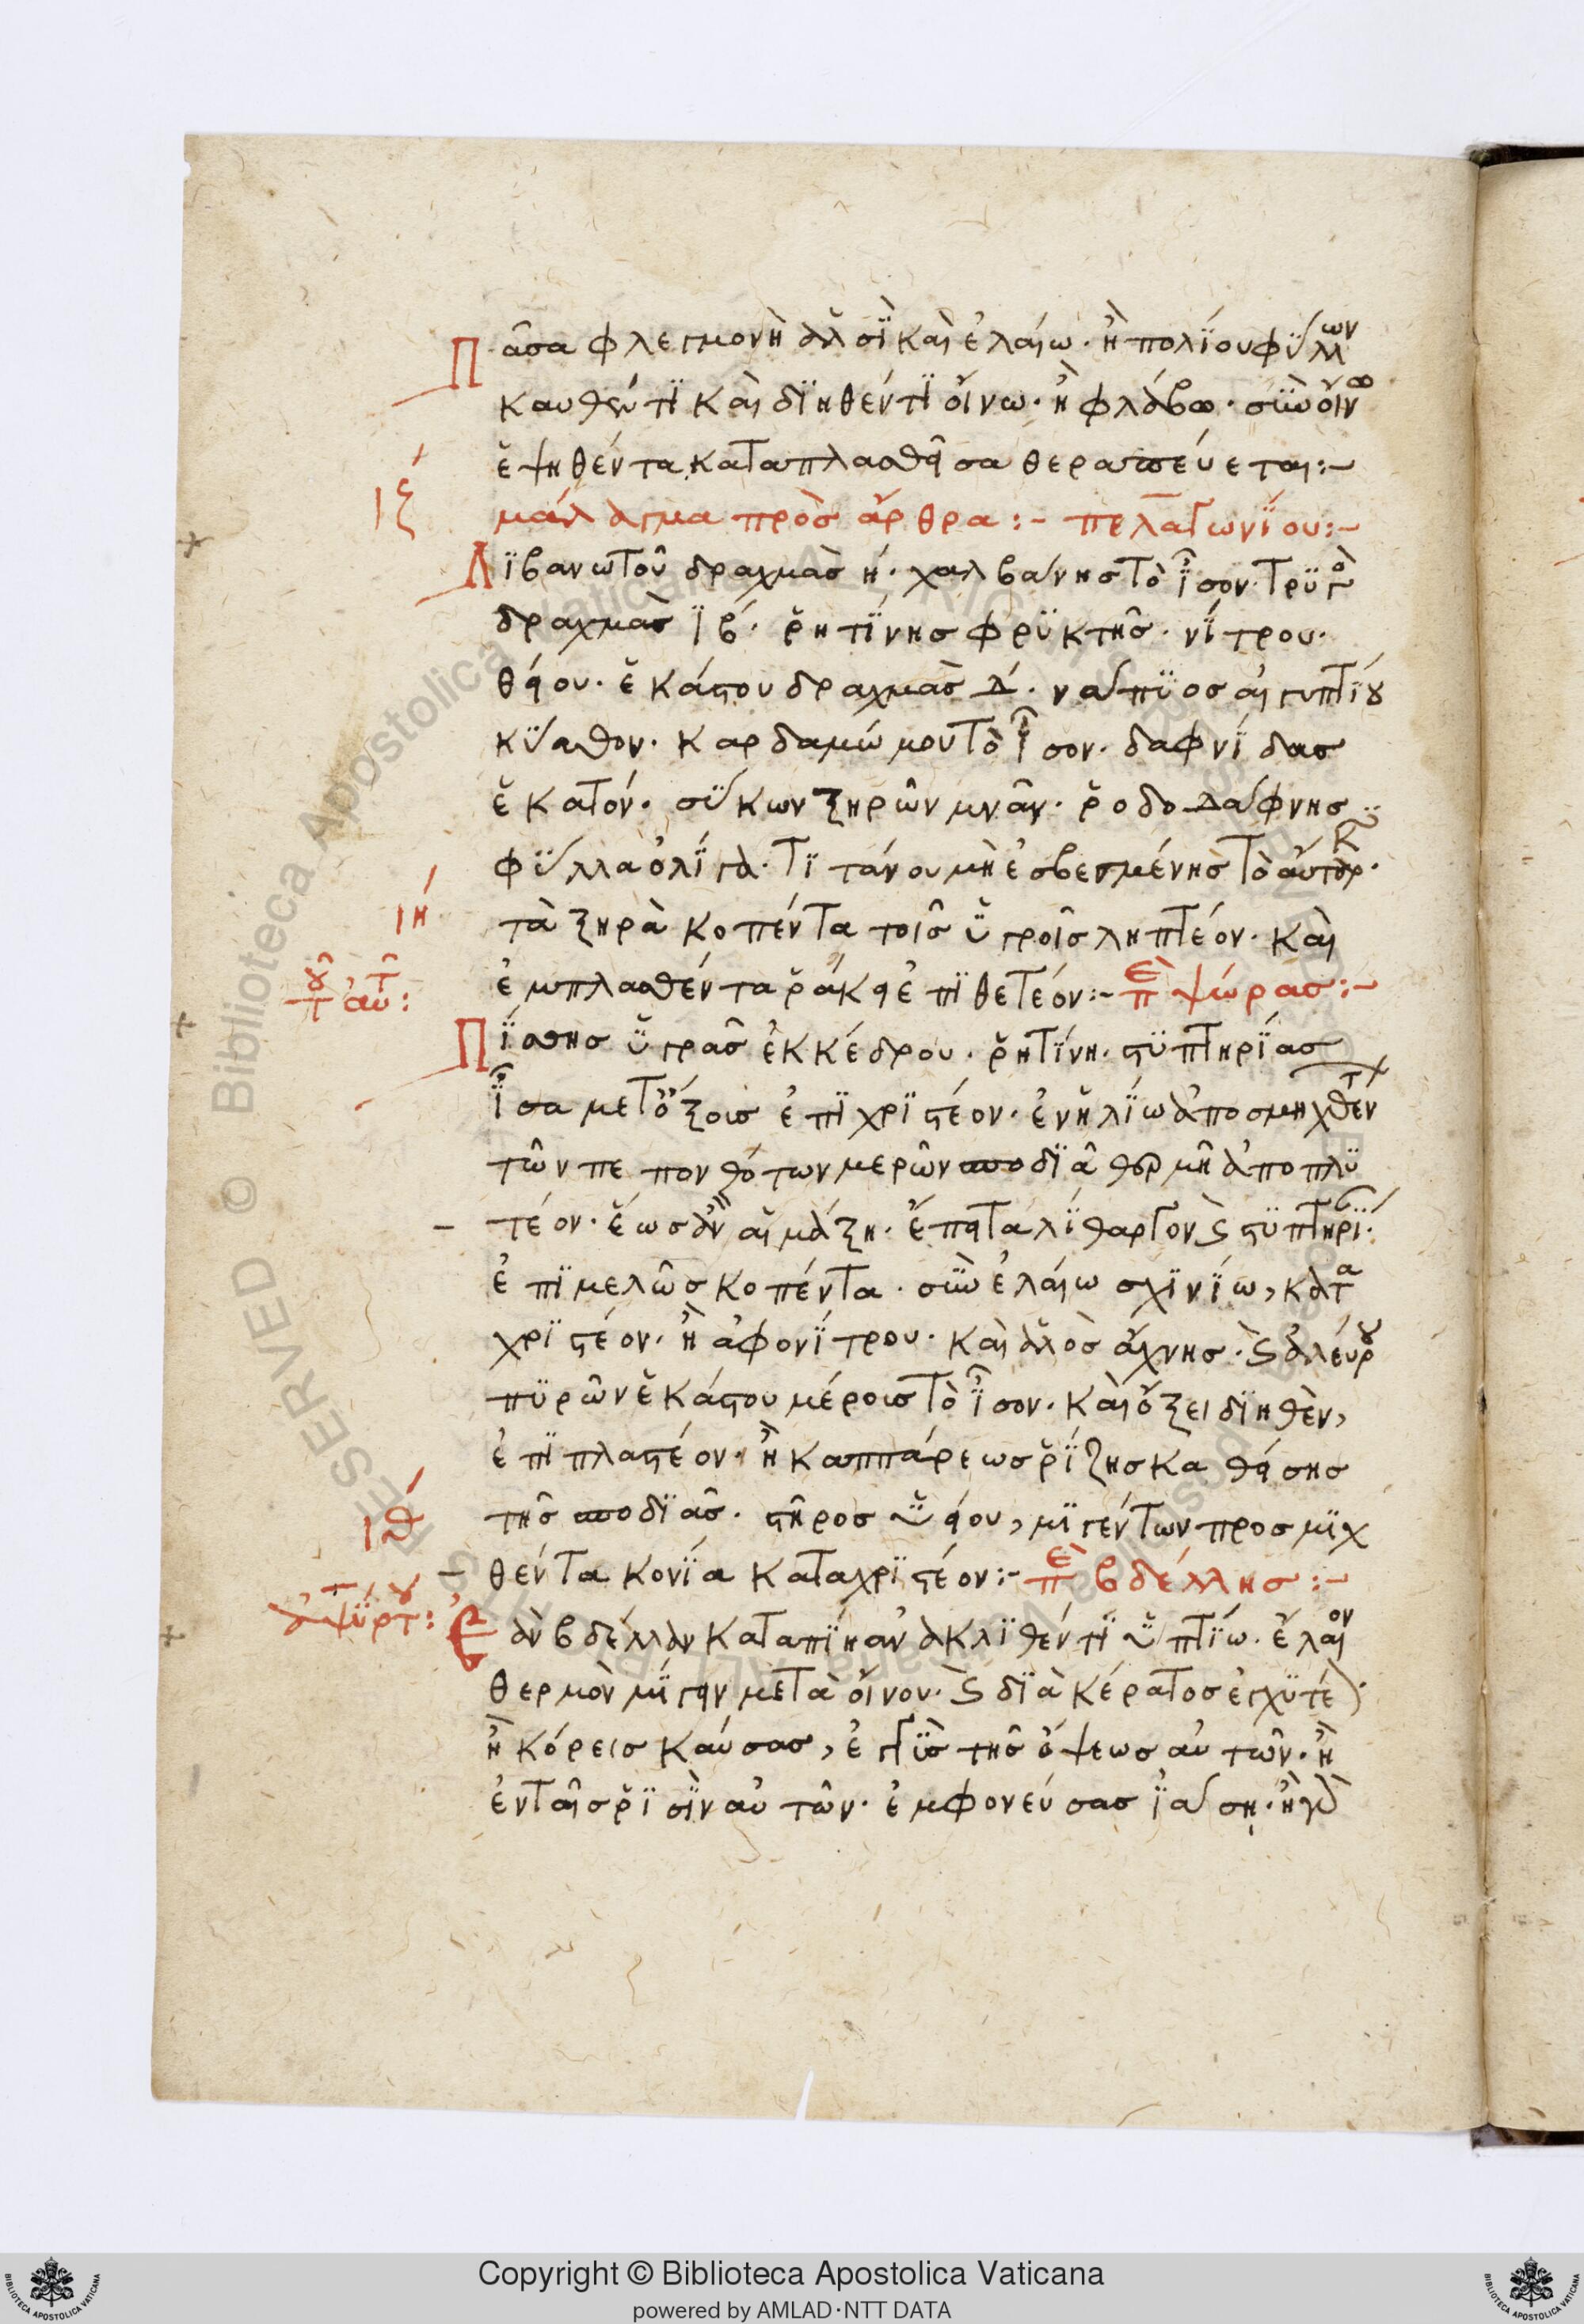 Πᾶσα φλεγμονὴ ἁλσὶ καὶ ἐλαίω· ἢ πολίου φύλλων
καυθέντι καὶ διηθέντι οἴνω· ἢ φλόβω· σὺν οἴνω
ἑψηθέντα καταπλασθεῖσα θεραπεύεται:-
ιζ μάλαγμα πρὸς ἄρθρα:- πελαγωνίου:-
Λιβανωτοῦ δραχμὰς η· χαλβάνης τὸ ἶσον· τρυγὸς
δραχμὰς ιβ· ῥητίνης φρυκτῆς· νίτρου·
θείου· ἑκάστου δραχμὰς δ· νάπυος αἰγυπτίου
κύαθον· καρδαμώμου τὸ ἶσον· δαφνίδας
ἑκατόν· σύκων ξηρῶν μνᾶν· ῥοδοδάφνης
φύλλα ὀλίγα· τιτάνου μὴ ἐσβεσμένης τὸ αὐτάρκ·
ιη τὰ ξηρὰ κοπέντα τοῖς ὑγροῖς ληπτέον· καὶ
τοῦ αὐτ: ἐμπλασθέντα ῥάκει ἐπιθετέον:- ἐπὶ ψώρας:-
Πίσσης ὑγρᾶς ἐκ κέδρου· ῥητίνη· στυπτηρίας
ἶσα μετ' ὄξους ἐπιχριστέον· ἐν ἡλίω ἀποσμηχθέντ
τῶν πεπονθότων μερῶν σποδιᾶ θερμῆ ἀποπλυ
τέον· ἕως ἂν αἱμάξη· ἔπειτα λιθάργον ϛ στυπτηρί·
ἐπιμελῶς κοπέντα· σὺν ἐλαίω σχινίω, κατα
χριστέον· ἢ ἀφονίτρου· καὶ ἁλὸς ἄχνης· ϛ ἀλεύρου
πυρῶν ἑκάστου μέρους τὸ ἶσον· καὶ ὄξει διηθὲν,
ἐπιπλαστέον· ἢ καππάρεως ῥίζης καθείσης
ιθ τῆς σποδιᾶς· στῆρος ὑείου, μιγέντων προσμιχ
θέντα κονία καταχριστέον:- ἐπὶ βδέλλης:-
ἀψύρτου: Ἐὰν βδέλλαν καταπίη ἀνακλιθέντι ὑπτίω· ἔλαιον
θερμὸν μίγειν μετὰ οἴνον· ϛ διὰ κέρατος ἐγχυτέ·
ἢ κόρεις καύσας, ἐγγὺς τῆς ὄψεως αὐτῶν· ἢ
ἐν ταῖς ῥισὶν αὐτῶν· ἐμφονεύσας ἰάση· ἢ
Copyright © Biblioteca Apostolica Vaticana
powered by AMLAD·NTT DATA